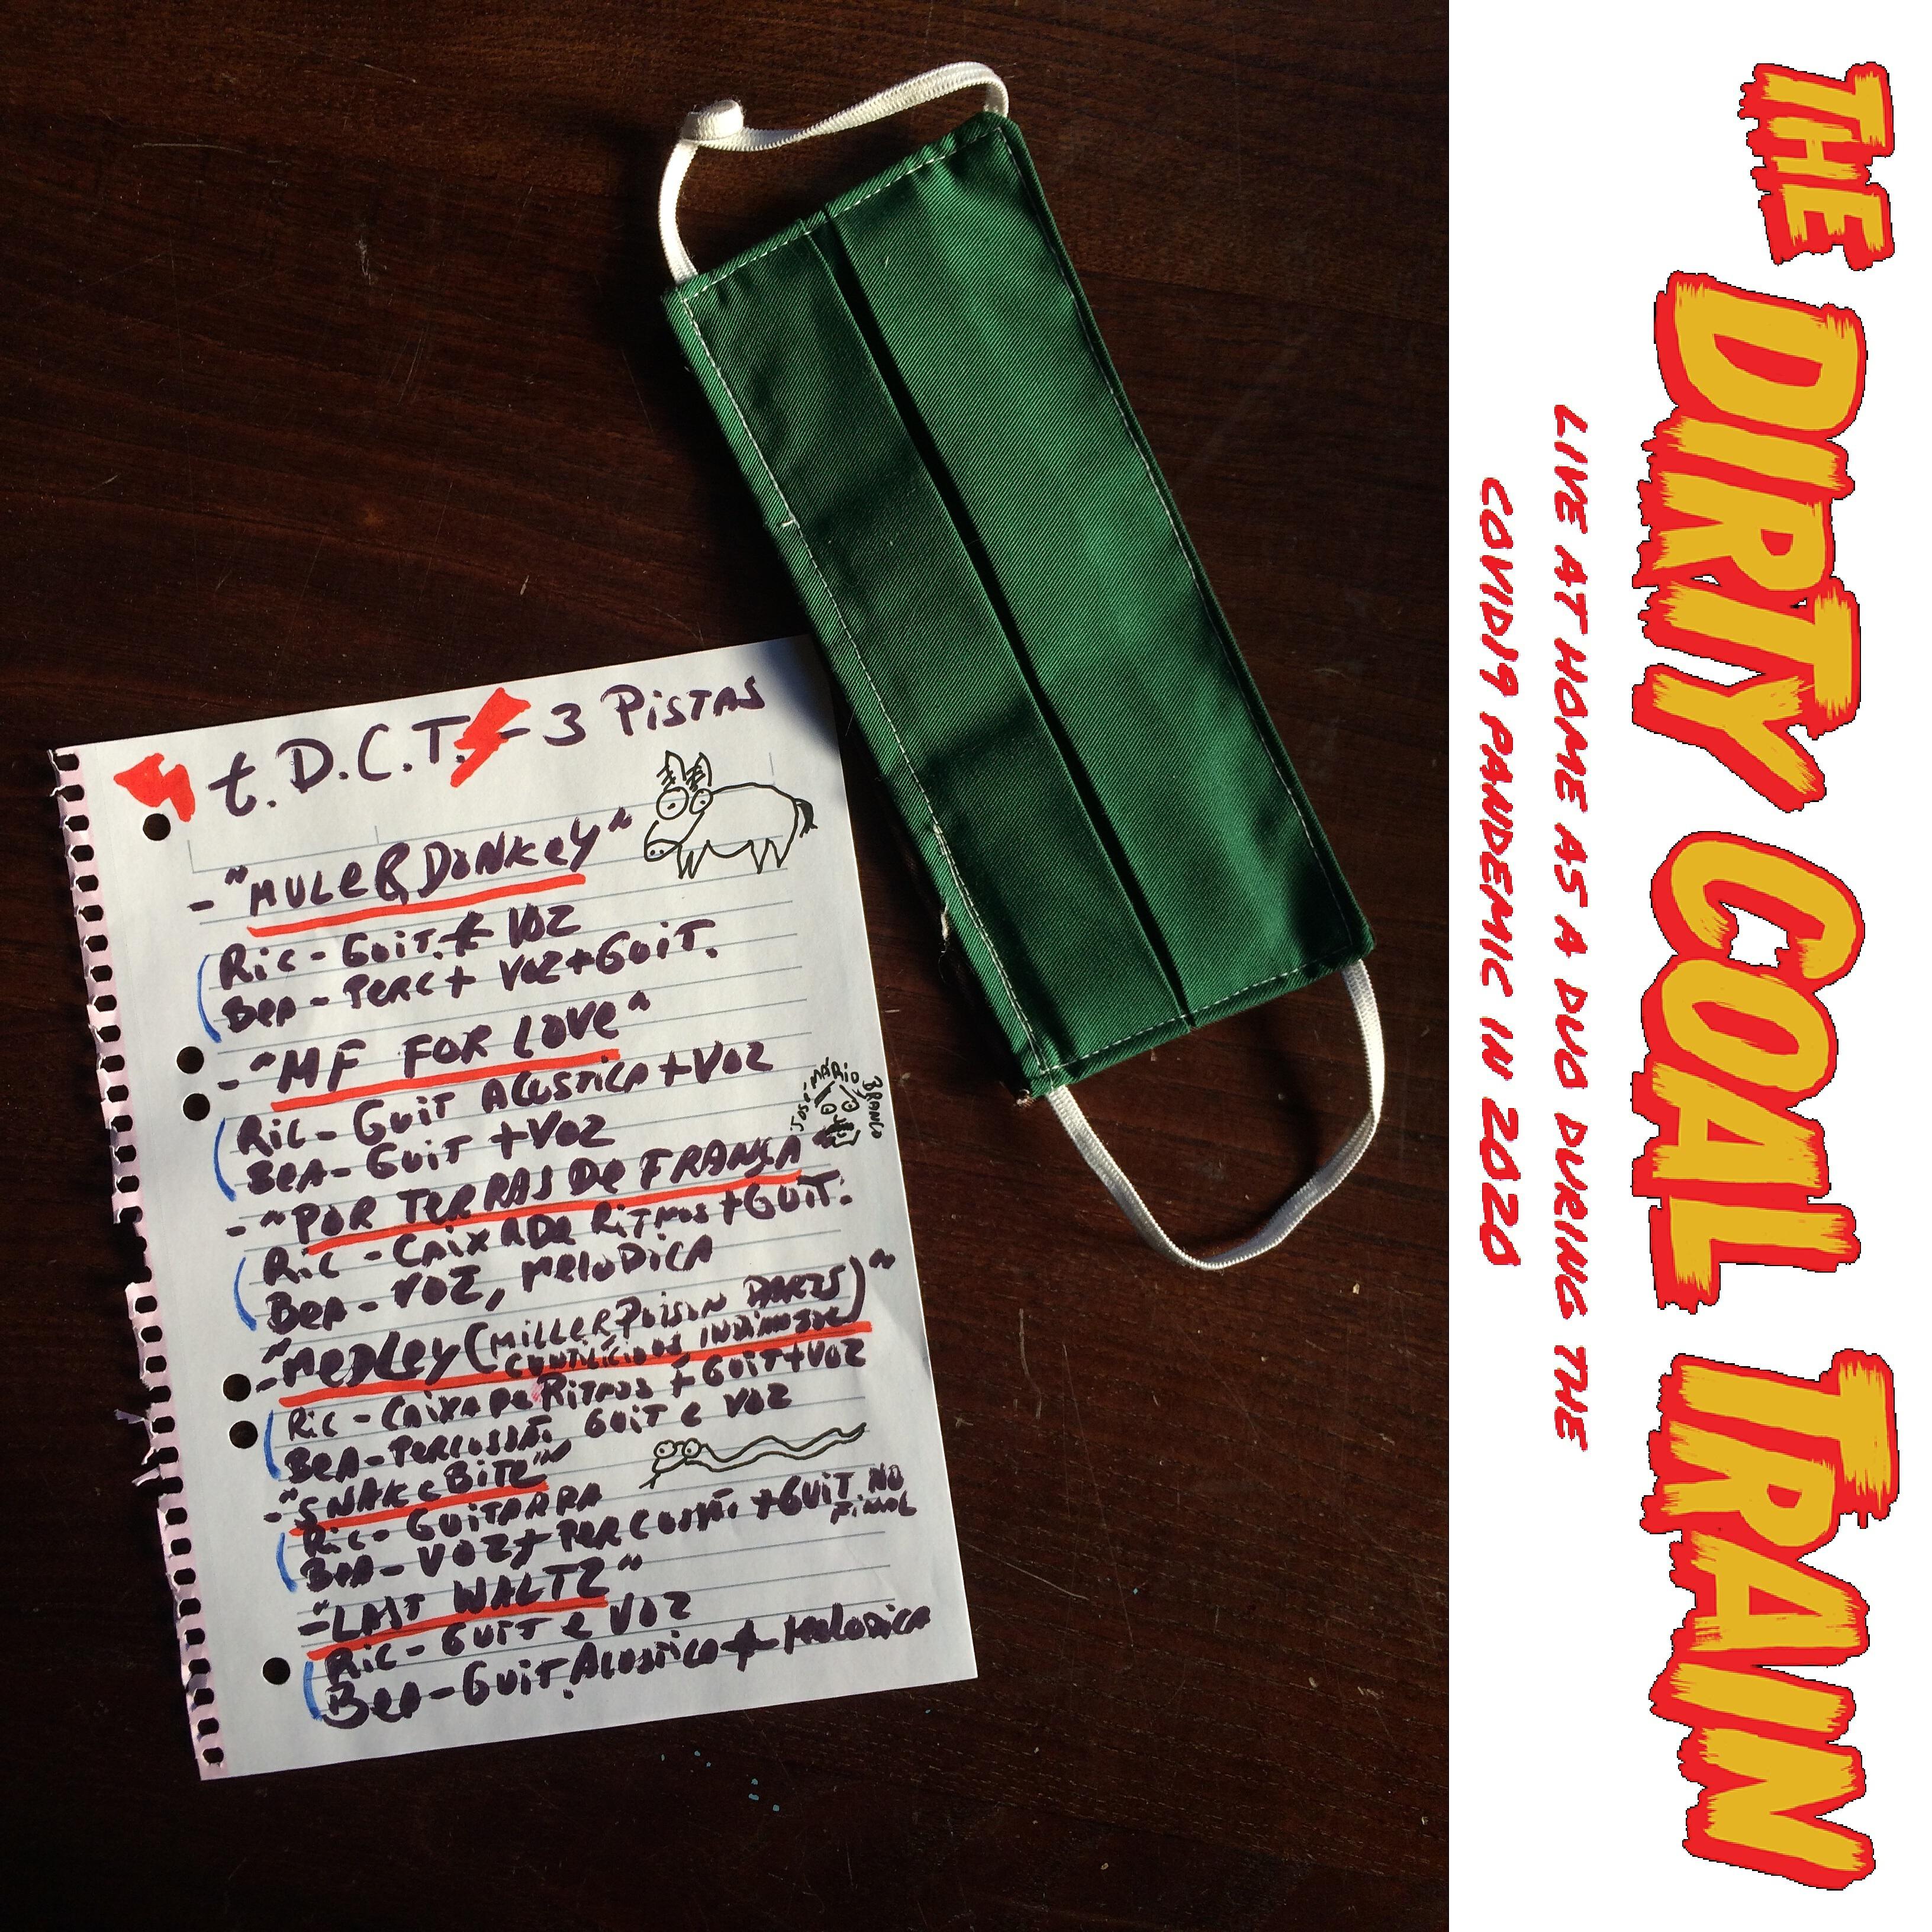 t. D.C.T. - 3 PISTAS
- "MULE & DONKEY"
Ric - GUIT. + VOZ
BEA - PERC + VOZ + GUIT.
- "MF FOR LOVE"
Ric - GUIT ACUSTICA + VOZ
BEA - GUIT + VOZ
JOSÉ MÁRIO BRANCO
- "POR TERRAS DE FRANÇA"
Ric - CAIXA DE RITMOS + GUIT.
BEA - VOZ, MELODICA
- "MEDLEY (MILLER POISON DARTS
INDIANIZE)"
Ric - CAIXA DE RITMOS + GUIT + VOZ
BEA - PERCUSSÃO GUIT e VOZ
- "SNAKE BITE"
Ric - GUITARRA
BEA - VOZ + PERCUSSÃO + GUIT. NO FINAL
- "LAST WALTZ"
Ric - GUIT e VOZ
BEA - GUIT. ACUSTICA + MELODICA
THE DIRTY COAL TRAIN
LIVE AT HOME AS A DUO DURING THE
COVID19 PANDEMIC IN 2020